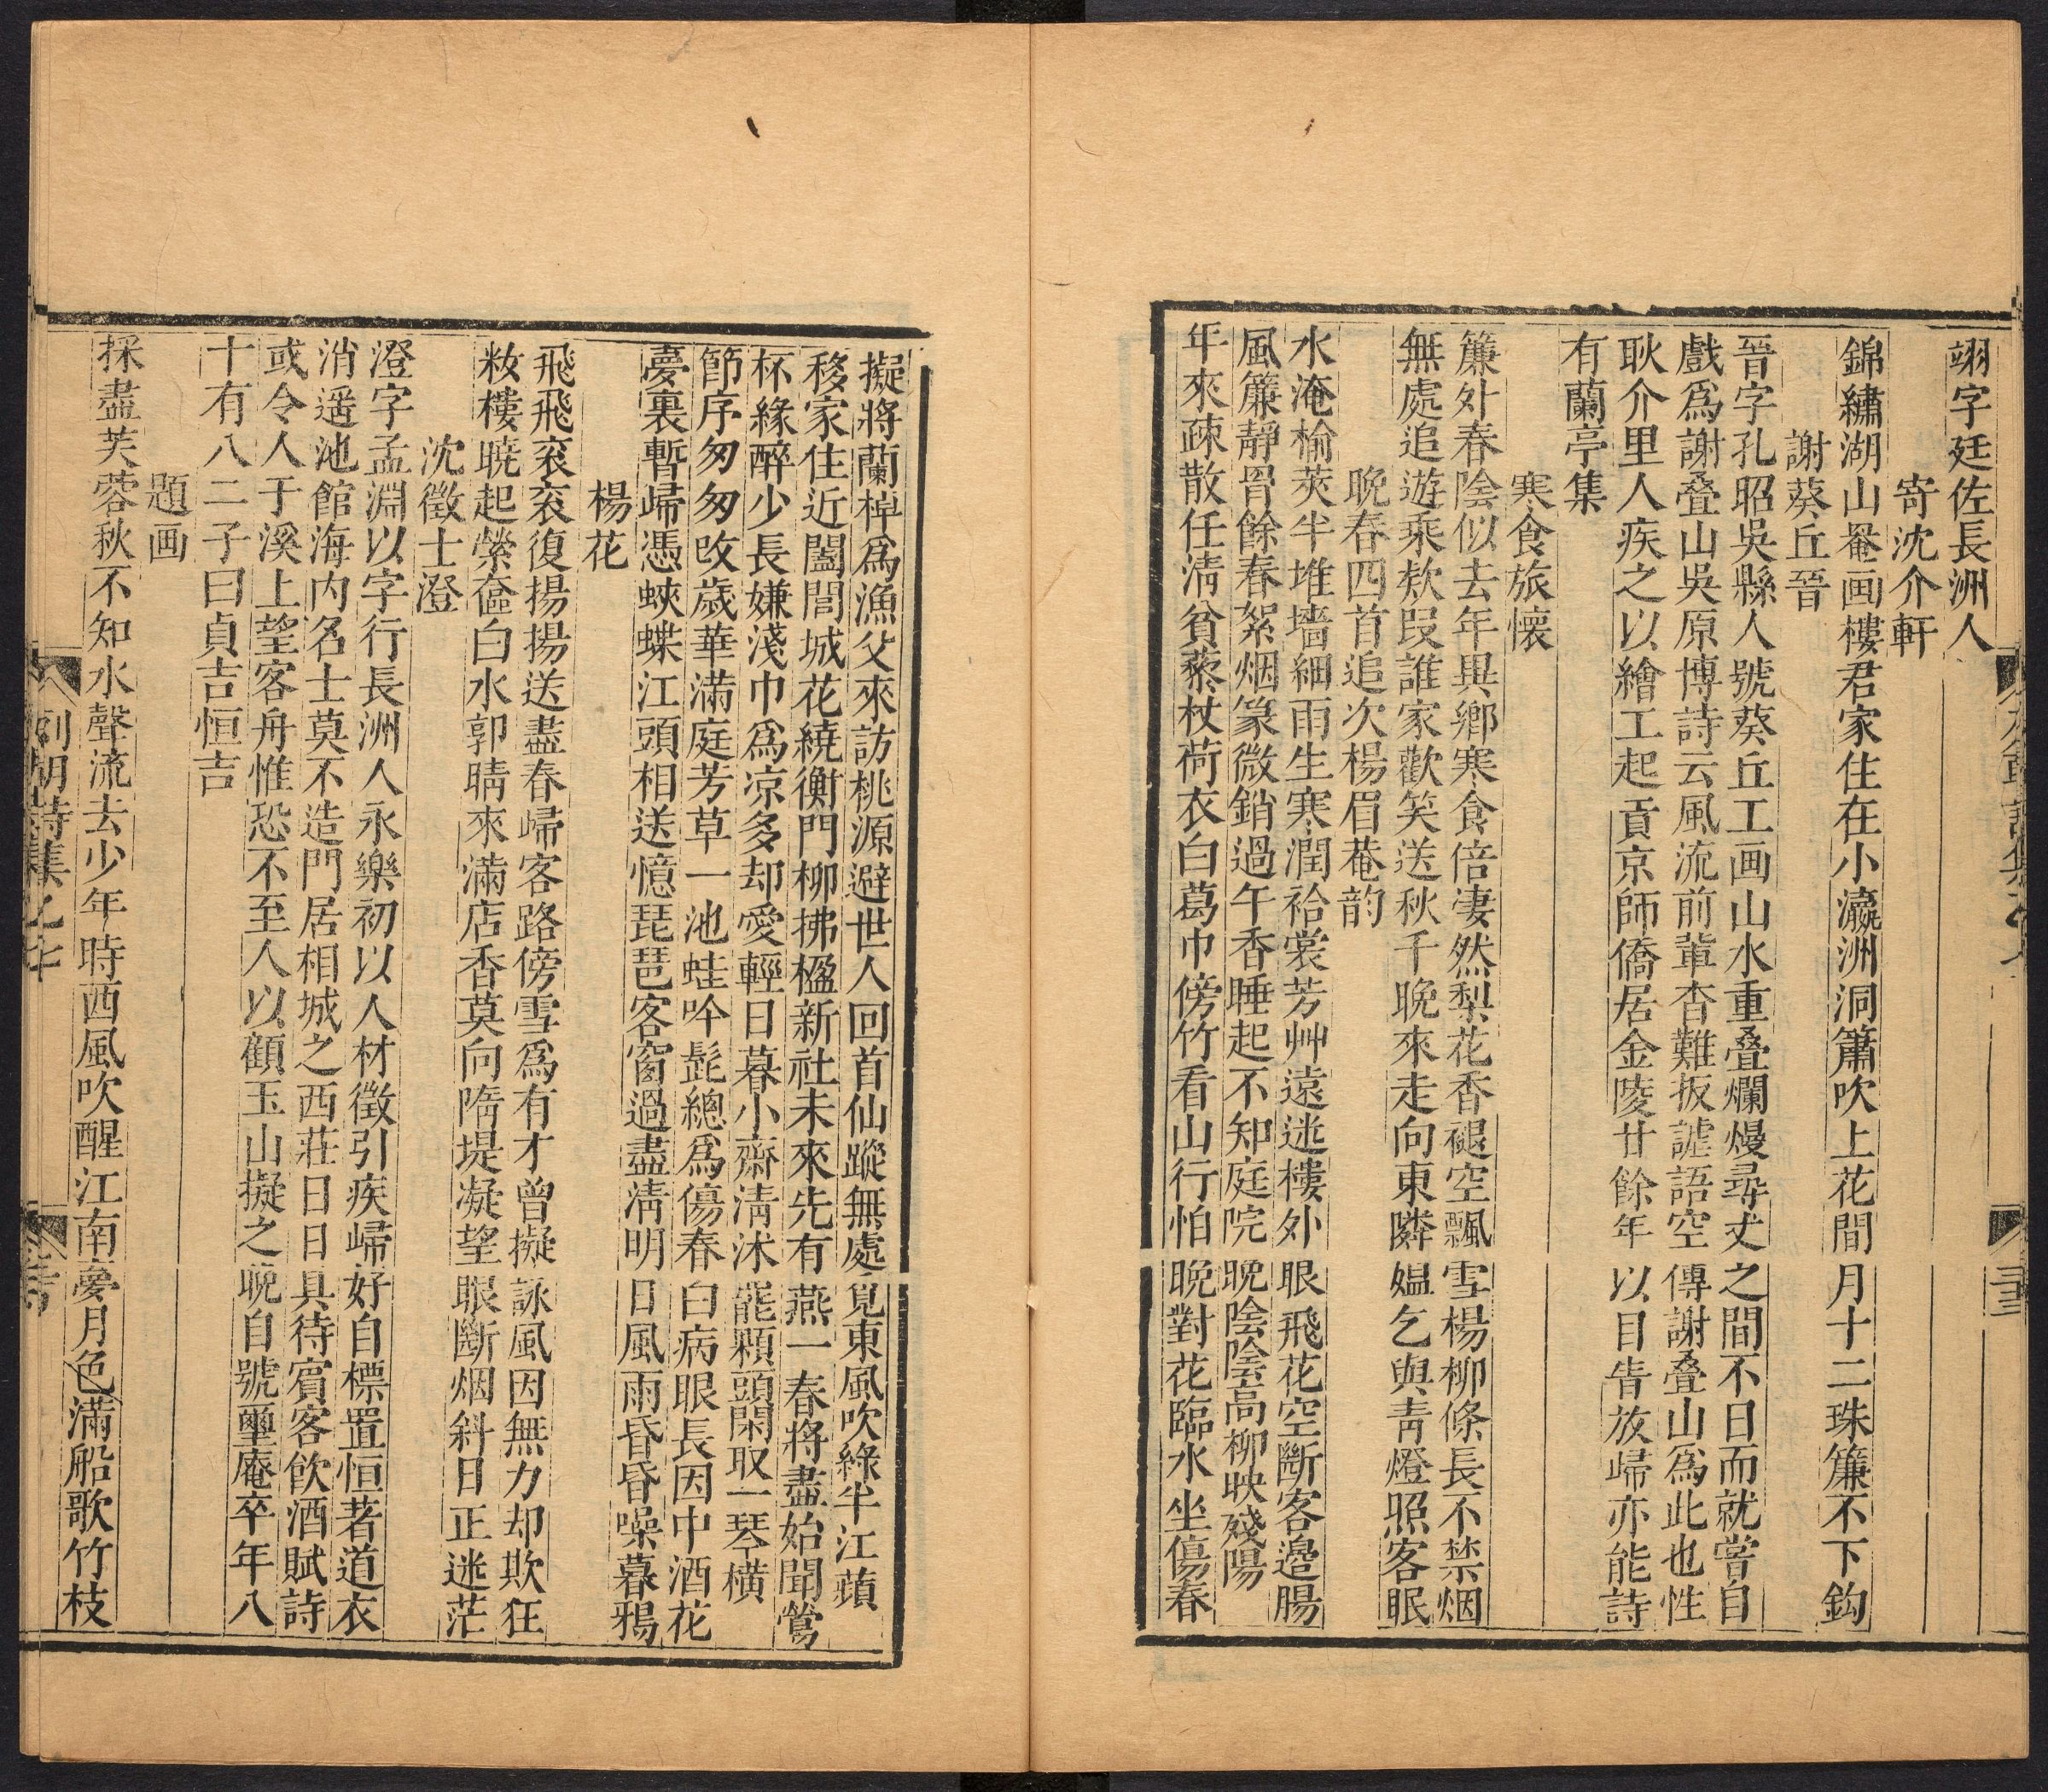 翊字廷佐長洲人
寄沈介軒
錦繡湖山罨画樓君家住在小瀛洲洞簫吹上花間月十二珠簾不下鈎
謝葵丘晉
晉字孔昭吳縣人號葵丘工画山水重叠爛熳尋丈之間不日而就嘗自
戲爲謝叠山吳原博詩云風流前輩杳難扳謔語空傳謝叠山爲此也性
耿介里人疾之以繪工起貢京師僑居金陵廿餘年以目眚放歸亦能詩
有蘭亭集
寒食旅懷
簾外春陰似去年異鄉寒食倍凄然梨花香褪空飄雪楊柳條長不禁烟
無處追遊乘欵叚誰家歡笑送秋千晚來走向東隣媪乞與青燈照客眠
晚春四首追次楊眉菴韵
水淹榆莢半堆墻細雨生寒潤袷裳芳艸遠迷樓外眼飛花空斷客邉腸
風簾靜罥餘春絮烟篆微銷過午香睡起不知庭院晚陰陰高柳映殘陽
年來疎散任淸貧藜杖荷衣白葛巾傍竹看山行怕晚對花臨水坐傷春
擬將蘭棹爲漁父來訪桃源避世人回首仙蹤無處覓東風吹綠半江蘋
移家住近闔閭城花繞衡門柳拂楹新社未來先有燕一春將盡始聞鶯
杯緣醉少長嫌淺巾爲凉多却愛輕日暮小齋淸沐罷顆頭閑取一琴橫
節序匆匆攺歲華滿庭芳草一池蛙吟髭總爲傷春白病眼長因中酒花
夣裏暫歸憑蛺蝶江頭相送憶琵琶客窗過盡淸明日風雨昏昏噪暮鴉
楊花
飛飛衮衮復揚揚送盡春歸客路傍雪爲有才曾擬詠風因無力却欺狂
籹樓曉起縈奩白水郭晴來滿店香莫向隋堤凝望眼斷烟斜日正迷茫
沈徵士澄
澄字孟淵以字行長洲人永樂初以人材徵引疾歸好自標置恒著道衣
消遥池館海内名士莫不造門居相城之西荘日日具待賓客飮酒賦詩
或令人于溪上望客舟惟恐不至人以顧玉山擬之晚自號壐庵卒年八
十有八二子曰貞吉恒吉
題画
採盡芙蓉秋不知水聲流去少年時西風吹醒江南夣月色滿船歌竹枝